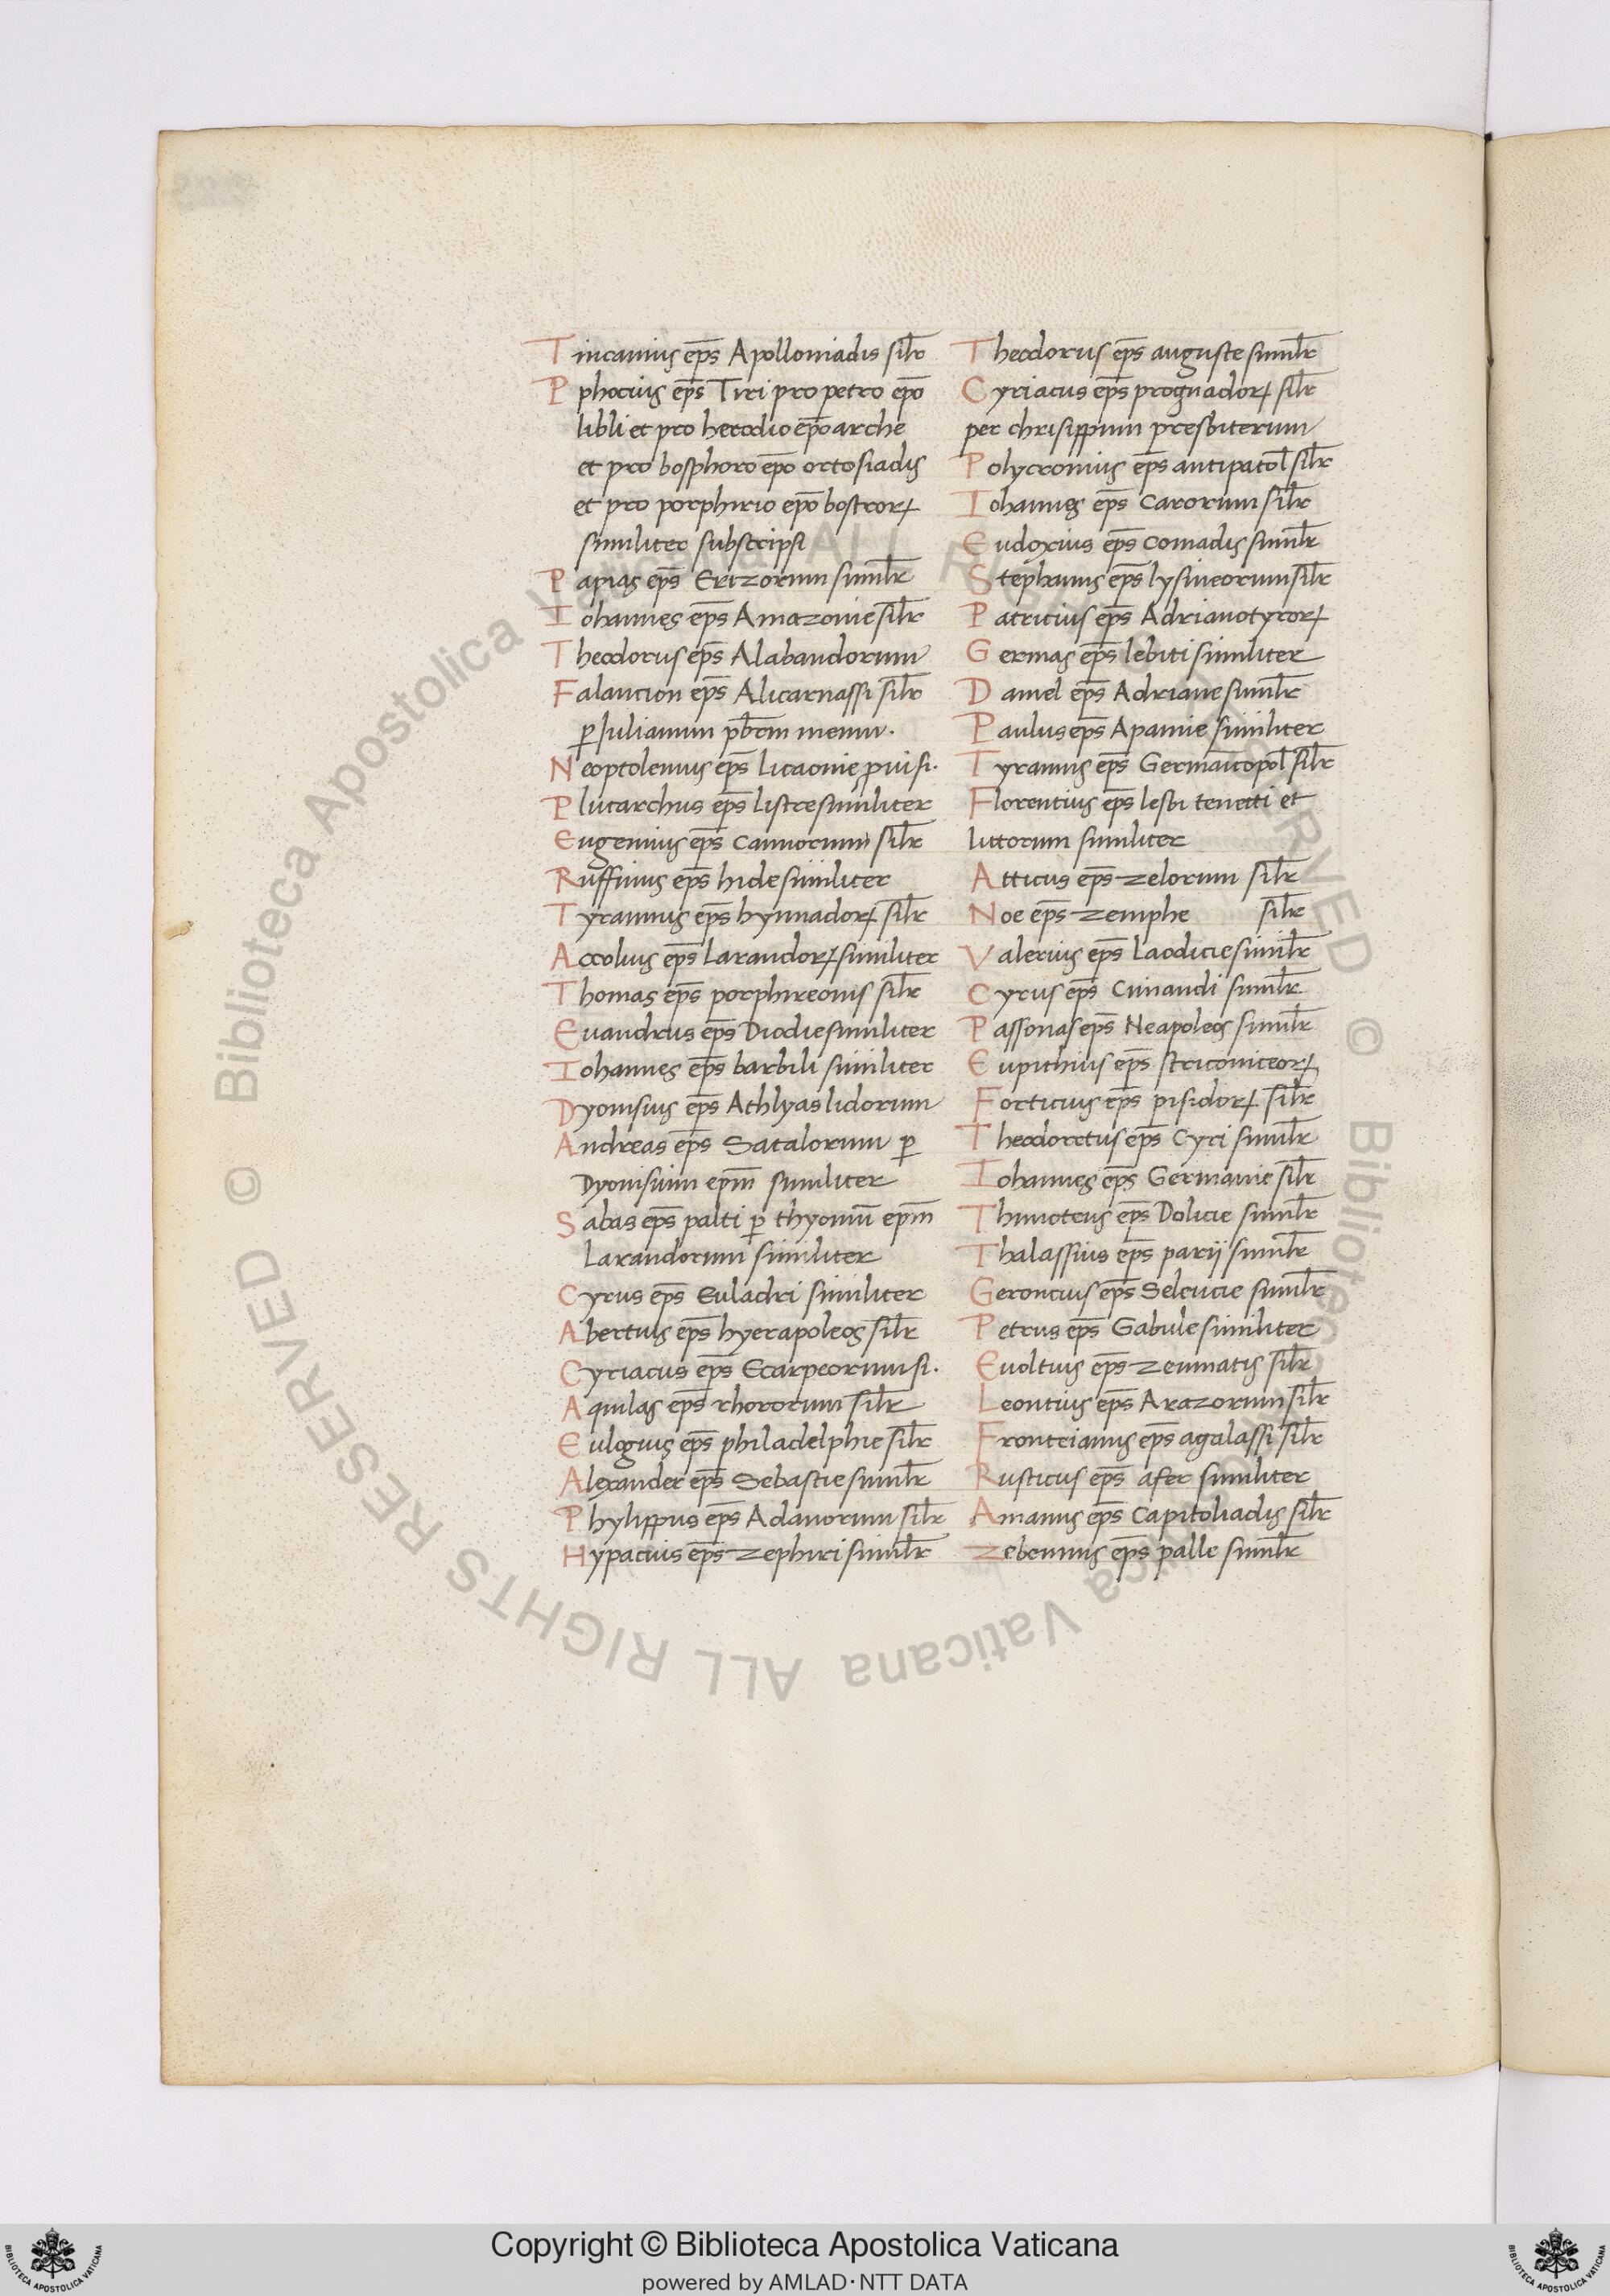 Tincanius ep̄s Apolloniadis sil̄r
Pphocius ep̄s Tiri pro petro ep̄o
libli et pro herodio ep̄o arche
et pro bosphoro ep̄o ortosiadis
et pro porphirio ep̄o bostroꝝ
similiter subscripsi
Papias ep̄s Erizorum simil̄r
Iohannes ep̄s Amazonie sil̄r
Theodorus ep̄s Alabandorum
Falancion ep̄s Alicarnassi sil̄r
ꝑ Iulianum pb̄rm meum.
Neoptolemus ep̄s licaonie puisi.
Plutarchus ep̄s listre similiter
Eugenius ep̄s Cannorum sil̄r
Ruffinus ep̄s hide similiter
Tyrannus ep̄s hynnadoꝝ sil̄r
Accolius ep̄s Larandoꝝ similiter
Thomas ep̄s porphireonis sil̄r
Euandrus ep̄s Diodie similiter
Iohannes ep̄s barbili similiter
Dyonisius ep̄s Athlyas lidorum
Andreas ep̄s Satalorum ꝑ
Dyonisium ep̄m similiter
Sabas ep̄s palti ꝑ thyoniū ep̄m
Larandorum similiter
Cyrus ep̄s Euladri similiter
Abertius ep̄s hyerapoleos sil̄r
Cyriacus ep̄s Ecarpeorum si.
Aquilas ep̄s rhororum sil̄r
Eulogius ep̄s philadelphie sil̄r
Alexander ep̄s Sebastie simil̄r
Phylippus ep̄s Adanorum sil̄r
Hypacius ep̄s zephiri simil̄r
Theodorus ep̄s auguste simil̄r
Cyriacus ep̄s prognadoꝝ sil̄r
per chrisippum presbiterum
Polycronius ep̄s antipatol̄ sil̄r
Iohannes ep̄s Carorum sil̄r
Eudoxius ep̄s Comadis simil̄r
Stephanus ep̄s lysineorum sil̄r
Patricius ep̄s Adrianotyroꝝ
Germas ep̄s lebiti similiter
Daniel ep̄s Adriane simil̄r
Paulus ep̄s Apamie similiter
Tyrannus ep̄s Germanicopol̄ sil̄r
Florentius ep̄s lesbi teneti et
littorum similiter
Atticus ep̄s zelorum sil̄r
Noe ep̄s zemphe sil̄r
Valerius ep̄s Laodicie simil̄r
Cyrus ep̄s Cinandi simil̄r
Passonas ep̄s Neapoleos simil̄r
Eupithius ep̄s striconiceoꝝ
Forticius ep̄s pisidoꝝ sil̄r
Theodoretus ep̄s Cyri simil̄r
Iohannes ep̄s Germanie sil̄r
Thimoteus ep̄s Dolicie simil̄r
Thalassius ep̄s parij simil̄r
Geroncius ep̄s Seleucie simil̄r
Petrus ep̄s Gabule similiter
Euoltius ep̄s zeumatis sil̄r
Leontius ep̄s Arazorum sil̄r
Fronteianus ep̄s agalassi sil̄r
Rusticus ep̄s afer similiter
Amanus ep̄s Capitoliadis sil̄r
Zebennus ep̄s palle simil̄r
© Biblioteca Apostolica Vaticana ALL RIGHTS RESERVED © Biblioteca Apostolica Vaticana ALL RIGHTS RESERVED
Copyright © Biblioteca Apostolica Vaticana
powered by AMLAD·NTT DATA
BIBLIOTECA APOSTOLICA VATICANA
BIBLIOTECA APOSTOLICA VATICANA